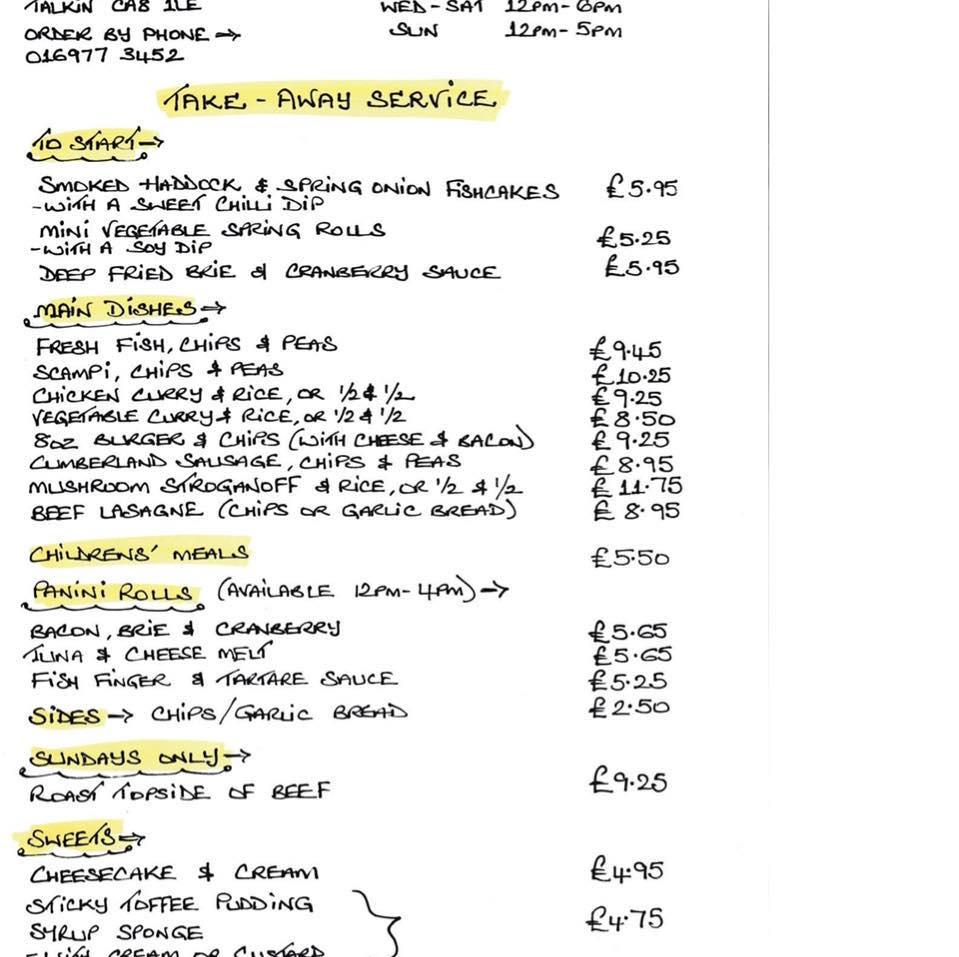 TALKIN CA8 1LE
WED - SAT 12PM - 6PM
ORDER BY PHONE →
SUN 12PM - 5PM
016977 3452
TAKE - AWAY SERVICE
TO START →
SMOKED HADDOCK & SPRING ONION FISHCAKES £5.95
- WITH A SWEET CHILLI DIP
MINI VEGETABLE SPRING ROLLS £5.25
- WITH A SOY DIP
DEEP FRIED BRIE & CRANBERRY SAUCE £5.95
MAIN DISHES →
FRESH FISH, CHIPS & PEAS £9.45
SCAMPI, CHIPS & PEAS £10.25
CHICKEN CURRY & RICE, OR 1/2 & 1/2 £9.25
VEGETABLE CURRY & RICE, OR 1/2 & 1/2 £8.50
8OZ BURGER & CHIPS (WITH CHEESE & BACON) £9.25
CUMBERLAND SAUSAGE, CHIPS & PEAS £8.95
MUSHROOM STROGANOFF & RICE, OR 1/2 & 1/2 £11.75
BEEF LASAGNE (CHIPS OR GARLIC BREAD) £8.95
CHILDRENS' MEALS £5.50
PANINI ROLLS (AVAILABLE 12PM - 4PM) →
BACON, BRIE & CRANBERRY £5.65
TUNA & CHEESE MELT £5.65
FISH FINGER & TARTARE SAUCE £5.25
SIDES → CHIPS/GARLIC BREAD £2.50
SUNDAYS ONLY →
ROAST TOPSIDE OF BEEF £9.25
SWEETS →
CHEESECAKE & CREAM £4.95
STICKY TOFFEE PUDDING
SYRUP SPONGE £4.75
- WITH CREAM OR CUSTARD